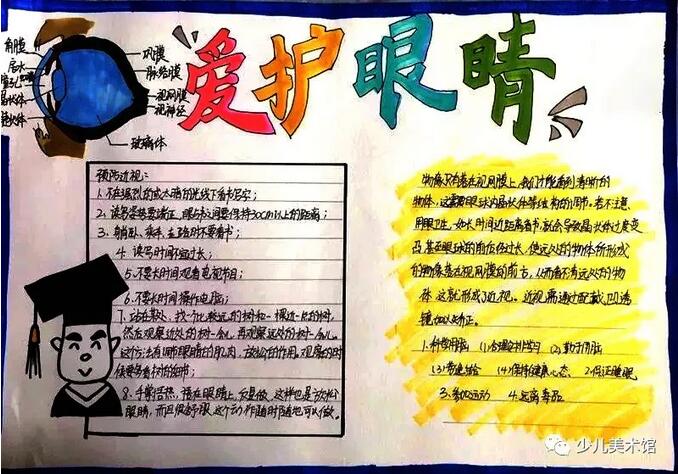 爱护眼睛
角膜
房水
瞳孔
晶状体
巩膜
脉络膜
视网膜
视神经
玻璃体
预防近视：
1、不在强烈的或太暗的光线下看书写字；
2、读写姿势要端正，眼与书之间要保持30cm以上的距离；
3、躺卧、乘车、走路时不要看书；
4、读写时间不宜过长；
5、不要长时间观看电视节目；
6、不要长时间操作电脑；
7、站在 找一个比较远的树和一棵近一点的树，
然后观察近处的树一会儿，再观察远处的树一会儿。
这方法有调节眼睛的肌肉，放松的作用，观察的时
候要够看树的细节；
8、手掌搭热，捂在眼睛上，反复做，这样也是放松
眼睛，而且很舒服，这个动作随时随地可以做。
物像只有落在视网膜上，我们才能看到清晰的
物体，这需要眼球内晶状体等结构的调节。若不注意
用眼卫生，如长时间近距离看书，就会导致晶状体过度变
凸甚至眼球的前后径过长，使远处的物体所形成
的物像落在视网膜的前方，从而看不清远处的物
体，这就形成了近视。近视需通过配戴凹透
镜加以矫正。
1、科学用脑 (1)合理安排学习 (2)勤于用脑
(3)劳逸结合 (4)保持健康心态 2、保证睡眠
3、参加运动 4、远离毒品
少儿美术馆